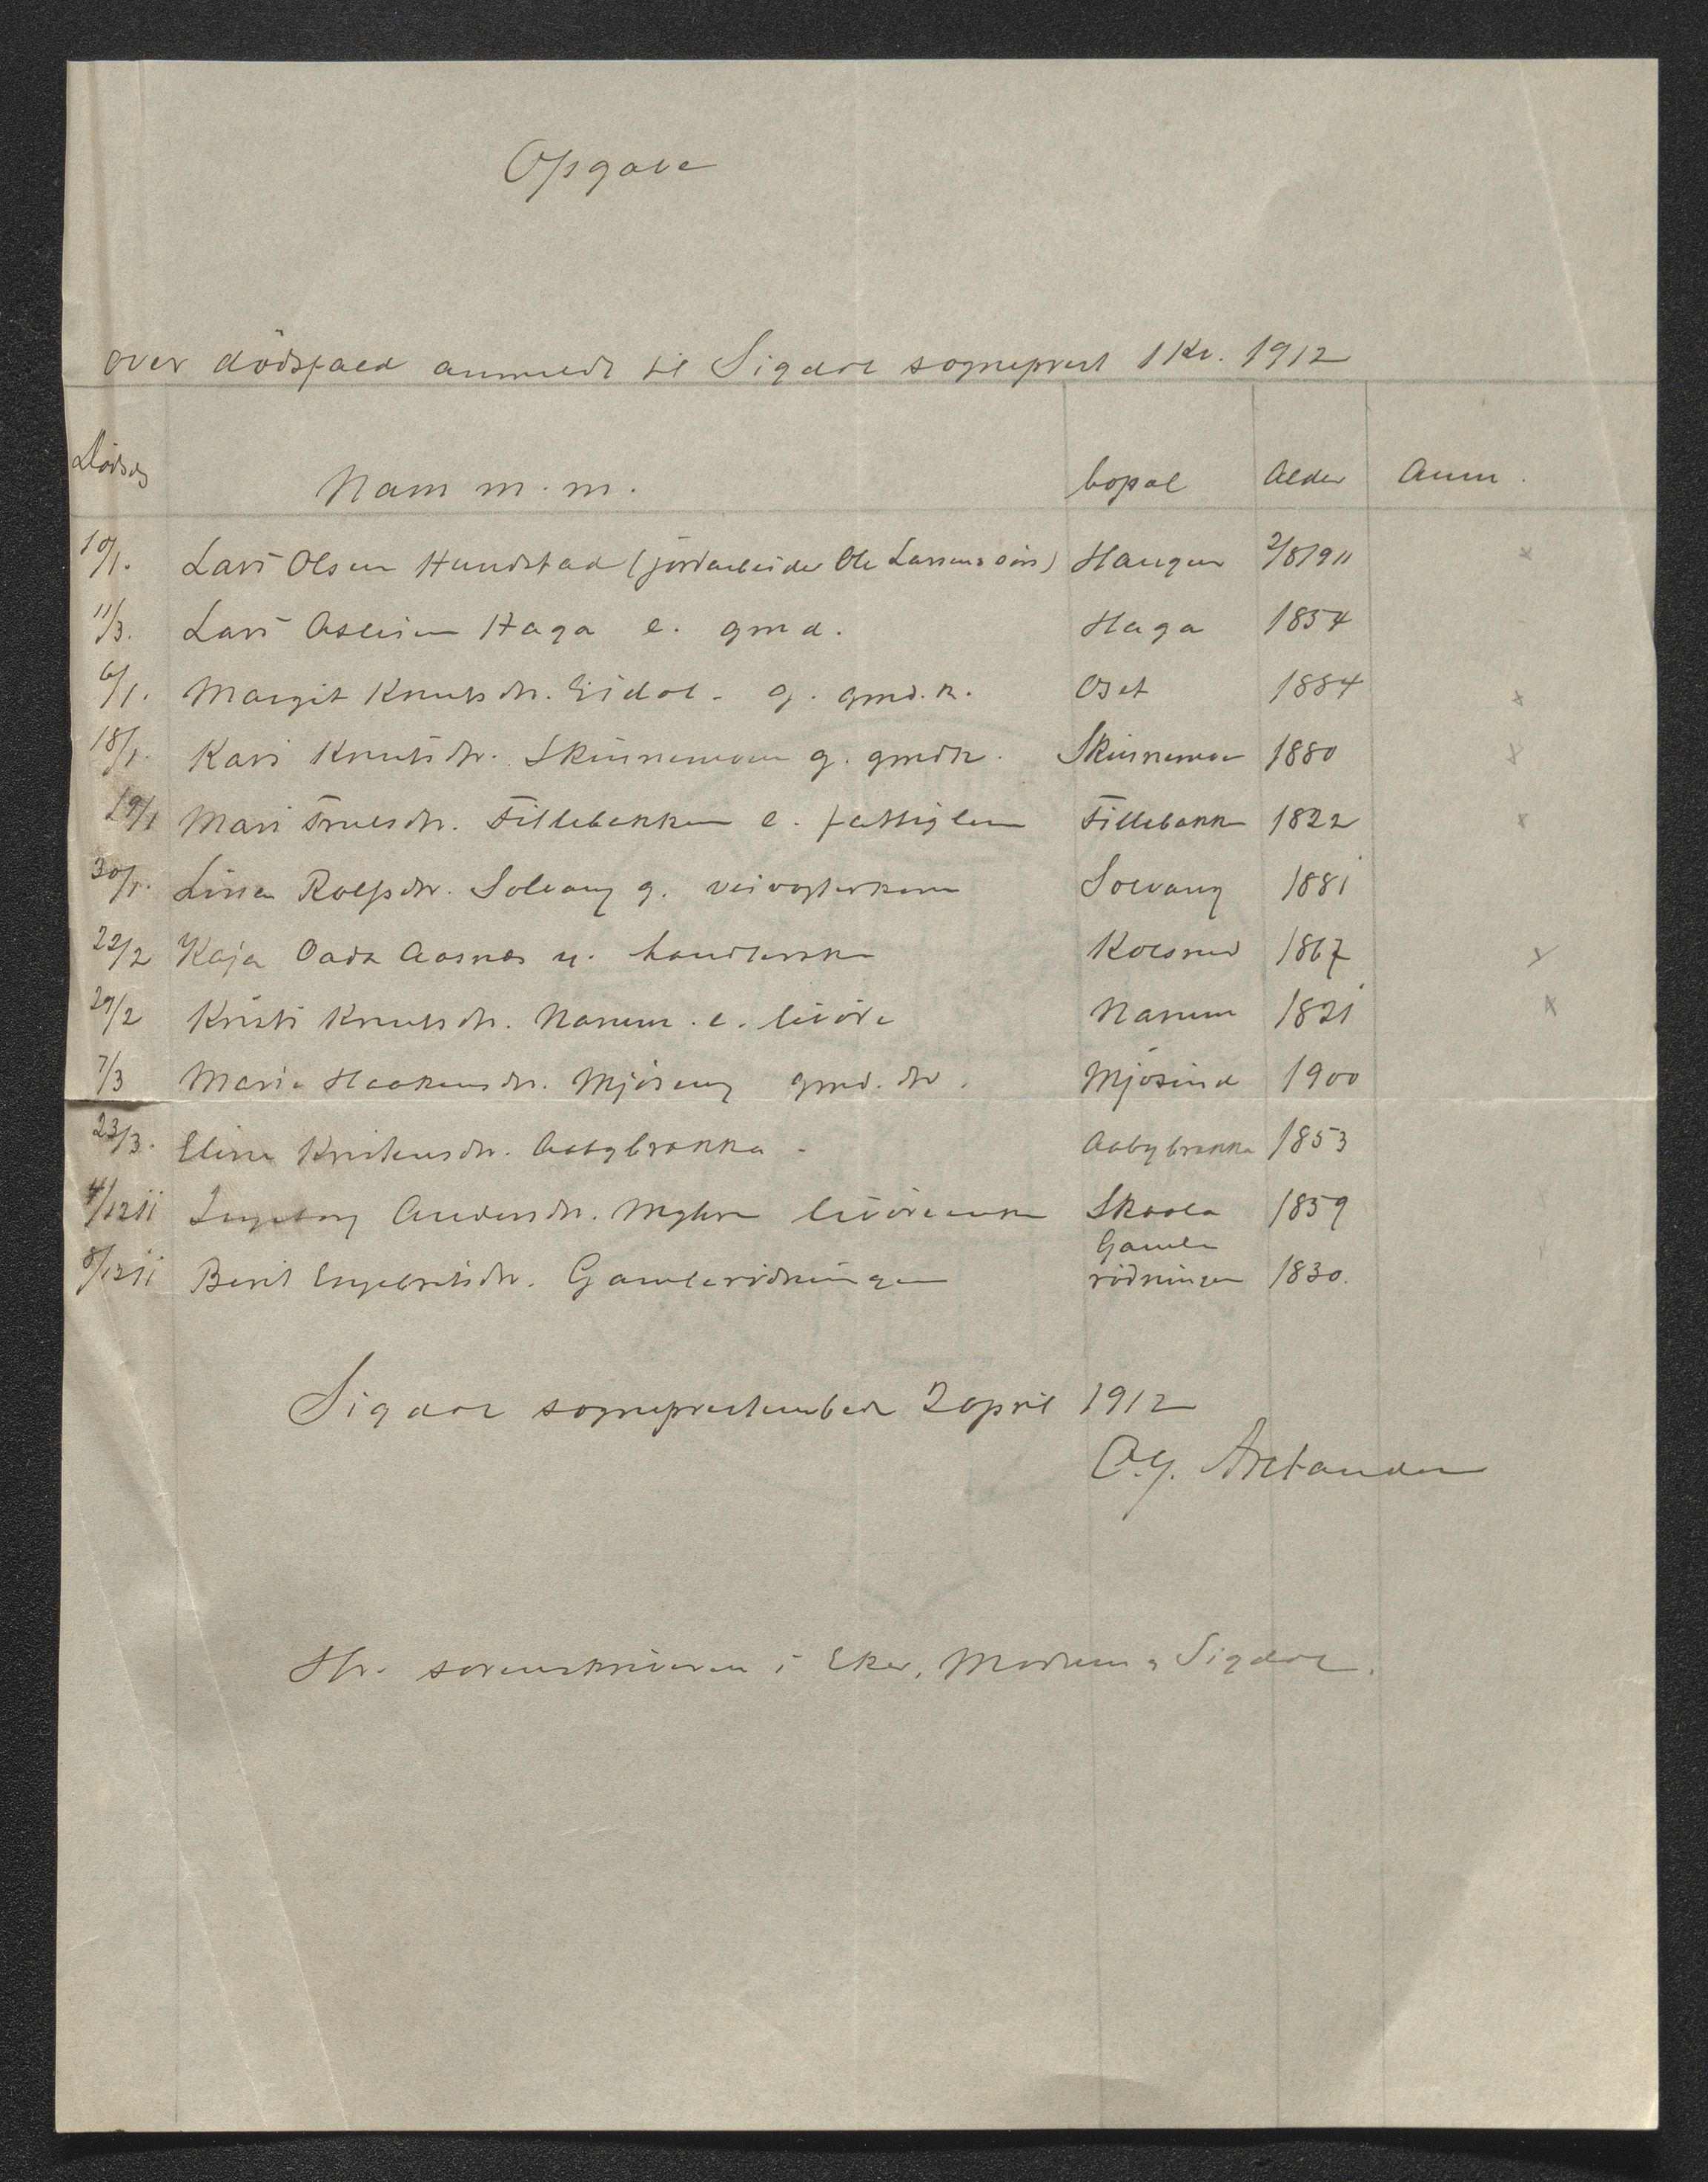 Opgave
over dödsfald anmeldt til Sigdal sogneprest 1 Kv. 1912
Dödsdg Navn m. m. bopæl Alder Anm.
10/1. Lars Olsen Hundstad (jordarbeider Ole Larsens sön) Haugen 2/8 1911 x
11/3. Lars Aslesen Haga e. gmd. Haga 1854
6/1. Margit Knutsdtr. Eidal - g. gmd.k. Oset 1884 x
18/1. Kari Knutsdtr. Skinnemoen g. gmdk. Skinnemoen 1880 x
19/1 Mari Trulsdtr. Fillebakken e. fattiglem Fillebakken 1822 x
30/1. Lina Rolfsdtr. Solvang g. veivogterkone Solvang 1881
22/2 Kaja Aasnæs u. handlerske Kolsrud 1867 x
29/2 Kristi Knutsdtr. Narum. e. livöre Narum 1821 x
7/3 Maria Haakensdtr. Mjöseng gmd. dtr. Mjösund 1900
23/3. Eline Kristensdtr. Aabybrækka - Aabybrækka 1853
4/12 11 Ingeborg Andersdtr. Myhre livöreenke Skaala 1859
8/12 11 Berit Engebretsdtr. Gamlerödningen Gamle
rödningen 1830.
Sigdal sogneprestembede 2 april 1912
O. G. Arctander
Hr. sorenskriveren i Eker, Modum & Sigdal.